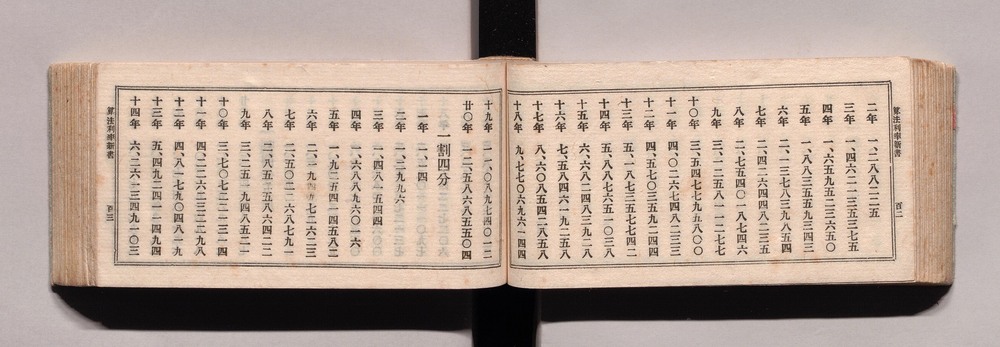 算法利率新書 百二
二年 一、二八八二二五
三年 一、四六二一三五三七五
四年 一、六五九五二三六五〇
五年 一、八八三五五九三四三
六年 二、一三七八三九八五四
七年 二、四二六四四八二三五
八年 二、七五四〇一八七四六
九年 三、一二五八一一二七七
十年 三、五四七七九五八〇〇
十一年 四、〇二六七四八二三三
十二年 四、五七〇三五九二四四
十三年 五、一八七三五七七四二
十四年 五、八八七六五一〇三八
十五年 六、六八二四八三九二八
十六年 七、五八四六一九二五八
十七年 八、六〇八五四二八五八
十八年 九、七七〇六九六一四四
十九年 一一、〇八九七四〇一二
廿〇年 一二、五八六八五五〇四
一割四分
一年 一、一四
二年 一、二九九六
三年 一、四八一五四四
四年 一、六八八九六〇一六
五年 一、九二五四一四五八二
六年 二、一九四九七二六二三
七年 二、五〇二二六八七九一
八年 二、八五二五八六四二二
九年 三、二五一九四八五二一
十〇年 三、七〇七二二一三一四
十一年 四、二二六二三二二九八
十二年 四、八一七九〇四八一九
十三年 五、四九二四一一四九四
十四年 六、二六一三四九一〇三
算法利率新書 百三